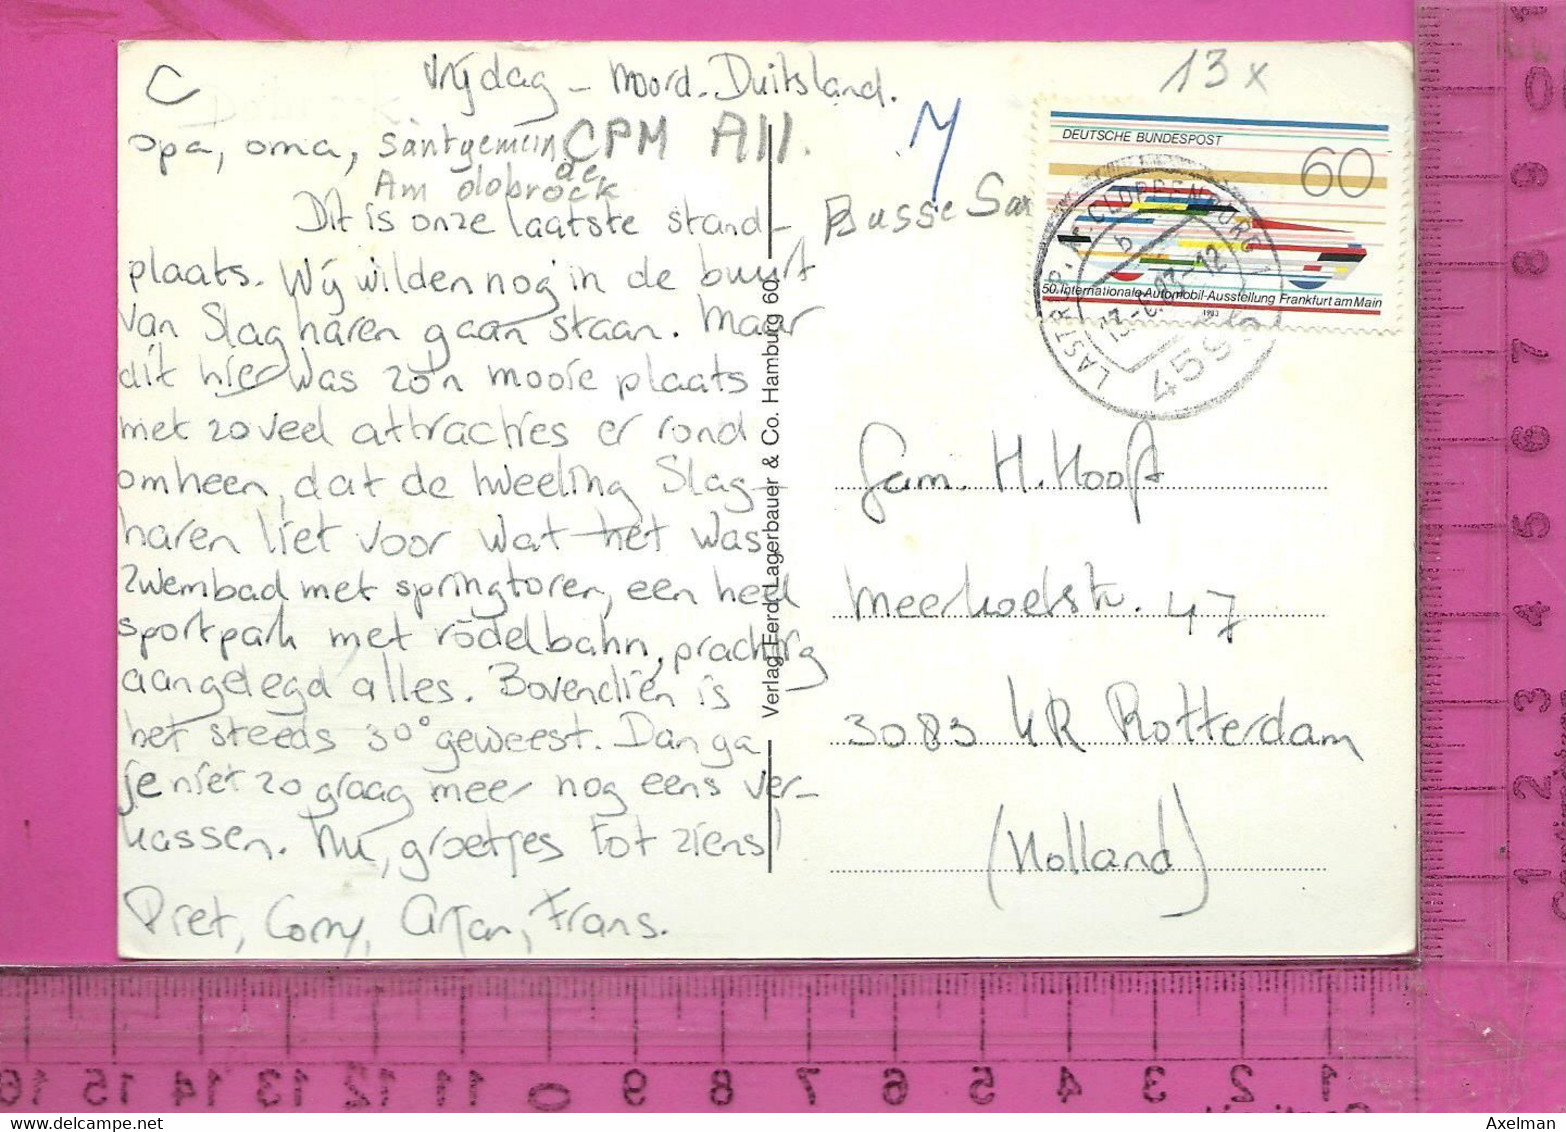 C
Vrijdag - Noord-Duitsland.
13 x
opa, oma,
CPM All.
Am
Dit is onze laatste stand-
plaats. Wij wilden nog in de buurt
van Slagharen gaan staan. Maar
dit hier was zo'n mooie plaats
met zoveel attracties er rond
omheen, dat de tweeling Slag-
haren liet voor wat het was
zwembad met springtoren, een heel
sportpark met rödelbahn, prachtig
aangelegd alles. Bovendien is
het steeds 30° geweest. Dan ga
je niet zo graag meer nog eens ver-
kassen. Nu, groetjes tot ziens!
Piet, Corry, Arjan, Frans.
Verlag Ferd. Lagerbauer & Co. Hamburg 60
Busse
DEUTSCHE BUNDESPOST
60
50. Internationale Automobil-Ausstellung Frankfurt am Main
1983
LASTRUP, Kr. CLOPPENBURG
b
Fam. H. Hooft
Meerkoetstr. 47
3083 KR Rotterdam
(Holland)
10
9
8
7
6
5
4
3
2
1
16 15 14 13 12 11 0 9 8 7 6 5 4 3 2 1
Axelman